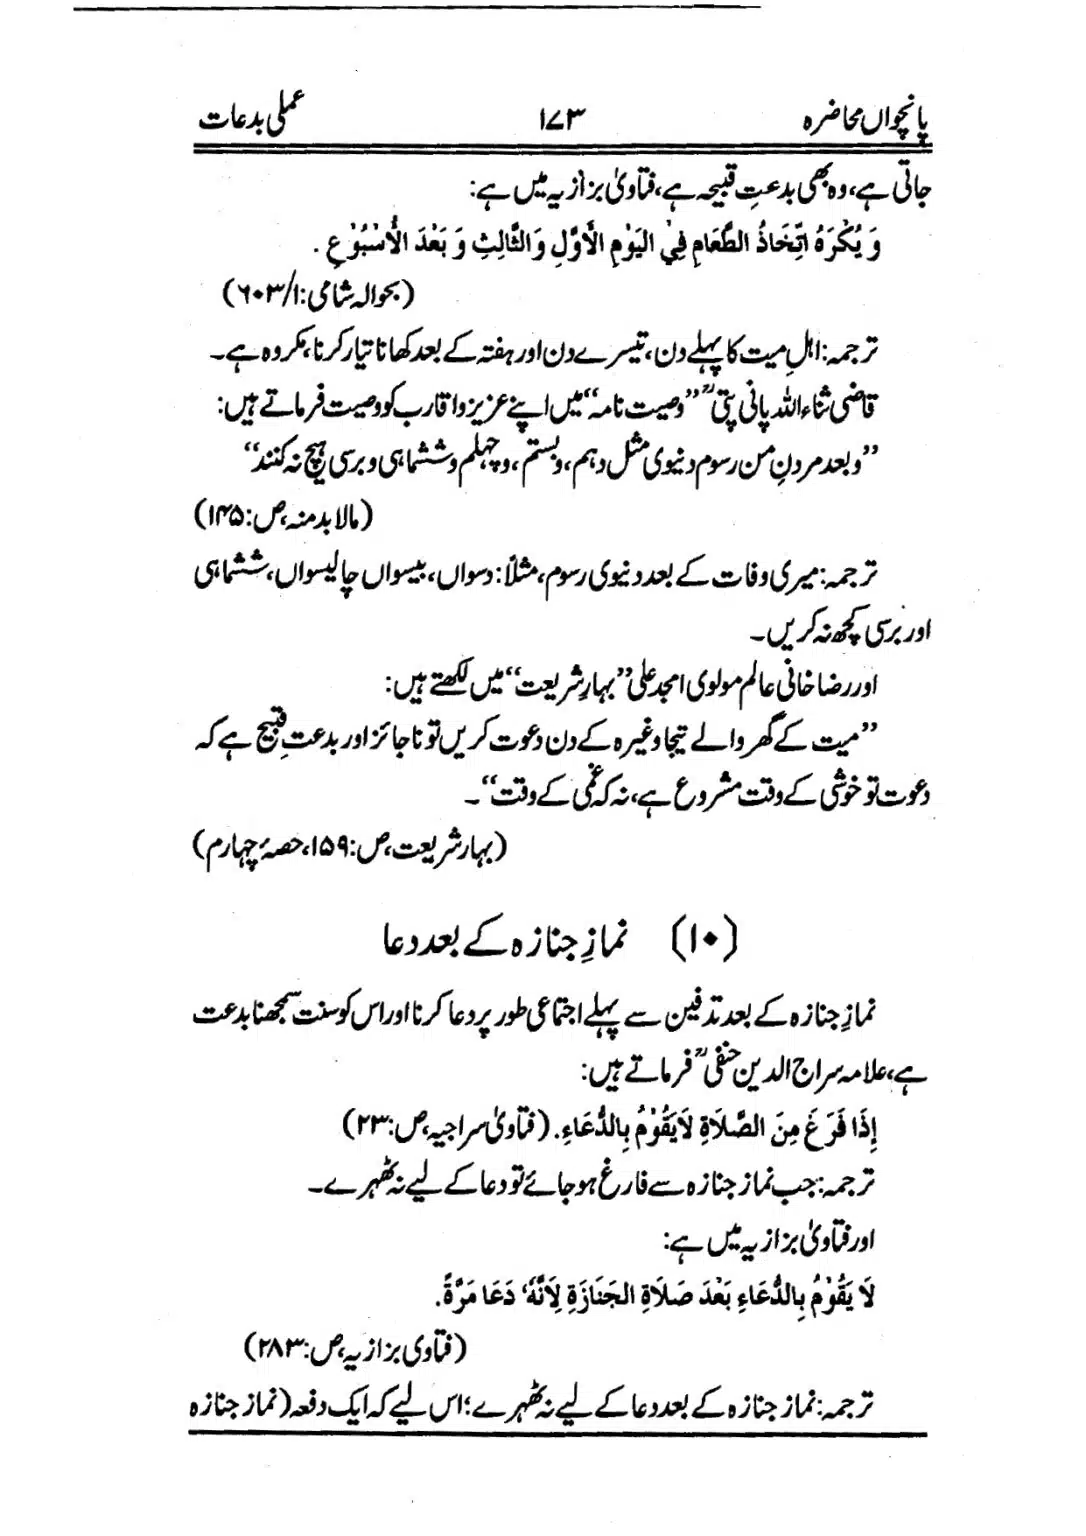 پانچواں محاضرہ ۱۷۳ عملی بدعات
جاتی ہے، وہ بھی بدعتِ قبیحہ ہے، فتاویٰ بزازیہ میں ہے:
وَ یُکْرَہُ اتِّخَاذُ الطَّعَامِ فِيْ الیَوْمِ الأَوَّلِ وَالثَّالِثِ وَ بَعْدَ الأُسْبُوْعِ .
(بحوالہ شامی: ۱/۶۰۳)
ترجمہ: اہلِ میت کا پہلے دن، تیسرے دن اور ہفتہ کے بعد کھانا تیار کرنا، مکروہ ہے۔
قاضی ثناء اللہ پانی پتیؒ ”وصیت نامہ“ میں اپنے عزیز واقارب کو وصیت فرماتے ہیں:
”وبعد مردنِ من رسوم دنیوی مثل دہم، وبستم، وچہلم وششماہی وبرسی ہیچ نہ کنند“
(مالا بدمنہ، ص: ۱۴۵)
ترجمہ: میری وفات کے بعد دنیوی رسوم، مثلاً: دسواں، بیسواں چالیسواں، ششماہی
اور برسی کچھ نہ کریں۔
اور رضاخانی عالم مولوی امجد علی ”بہارِ شریعت“ میں لکھتے ہیں:
”میت کے گھر والے تیجا وغیرہ کے دن دعوت کریں تو ناجائز اور بدعتِ قبیح ہے کہ
دعوت تو خوشی کے وقت مشروع ہے، نہ کہ غمی کے وقت“۔
(بہار شریعت، ص: ۱۵۹، حصۂ چہارم)
(۱۰) نمازِ جنازہ کے بعد دعا
نمازِ جنازہ کے بعد تدفین سے پہلے اجتماعی طور پر دعا کرنا اور اس کو سنت سمجھنا بدعت
ہے، علامہ سراج الدین حنفیؒ فرماتے ہیں:
إِذَا فَرَغَ مِنَ الصَّلَاةِ لَا یَقُوْمُ بِالدُّعَاءِ. (فتاویٰ سراجیہ، ص: ۲۳)
ترجمہ: جب نماز جنازہ سے فارغ ہو جائے تو دعا کے لیے نہ ٹھہرے۔
اور فتاویٰ بزازیہ میں ہے:
لَا یَقُوْمُ بِالدُّعَاءِ بَعْدَ صَلَاةِ الجَنَازَةِ لِأَنَّہٗ دَعَا مَرَّةً.
(فتاوی بزازیہ، ص: ۲۸۳)
ترجمہ: نماز جنازہ کے بعد دعا کے لیے نہ ٹھہرے؛ اس لیے کہ ایک دفعہ (نماز جنازہ